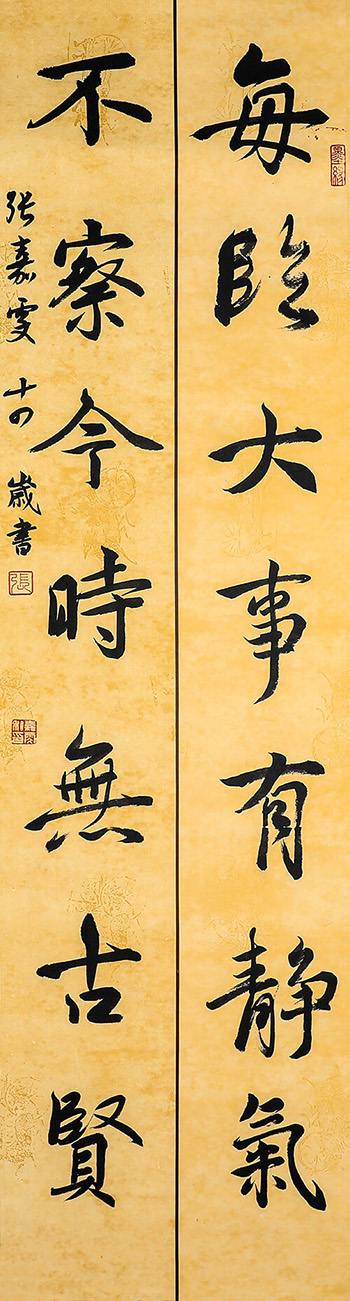 每臨大事有静氣
不察今時無古賢
張嘉雯 十四歲書
張